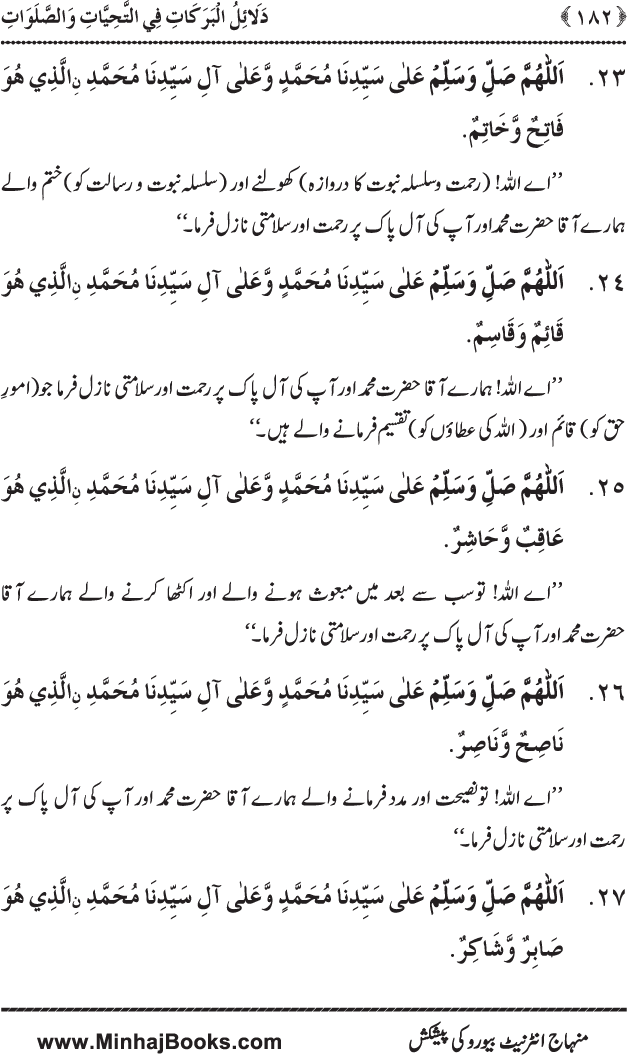 ﴿١٨٢﴾ دَلَائِلُ الْبَرَكَاتِ فِي التَّحِيَّاتِ وَالصَّلَوَاتِ
٢٣. اَللّٰهُمَّ صَلِّ وَسَلِّمْ عَلٰى سَيِّدِنَا مُحَمَّدٍ وَّعَلٰى آلِ سَيِّدِنَا مُحَمَّدِ نِ الَّذِي هُوَ
فَاتِحٌ وَّخَاتِمٌ.
’’اے اللہ! (رحمت و سلسلہ نبوت کا دروازہ) کھولنے اور (سلسلہ نبوت و رسالت کو) ختم والے
ہمارے آقا حضرت محمد اور آپ کی آل پاک پر رحمت اور سلامتی نازل فرما۔‘‘
٢٤. اَللّٰهُمَّ صَلِّ وَسَلِّمْ عَلٰى سَيِّدِنَا مُحَمَّدٍ وَّعَلٰى آلِ سَيِّدِنَا مُحَمَّدِ نِ الَّذِي هُوَ
قَائِمٌ وَقَاسِمٌ.
’’اے اللہ! ہمارے آقا حضرت محمد اور آپ کی آل پاک پر رحمت اور سلامتی نازل فرما جو (امورِ
حق کو) قائم اور (اللہ کی عطاؤں کو) تقسیم فرمانے والے ہیں۔‘‘
٢٥. اَللّٰهُمَّ صَلِّ وَسَلِّمْ عَلٰى سَيِّدِنَا مُحَمَّدٍ وَّعَلٰى آلِ سَيِّدِنَا مُحَمَّدِ نِ الَّذِي هُوَ
عَاقِبٌ وَّحَاشِرٌ.
’’اے اللہ! تو سب سے بعد میں مبعوث ہونے والے اور اکٹھا کرنے والے ہمارے آقا
حضرت محمد اور آپ کی آل پاک پر رحمت اور سلامتی نازل فرما۔‘‘
٢٦. اَللّٰهُمَّ صَلِّ وَسَلِّمْ عَلٰى سَيِّدِنَا مُحَمَّدٍ وَّعَلٰى آلِ سَيِّدِنَا مُحَمَّدِ نِ الَّذِي هُوَ
نَاصِحٌ وَّنَاصِرٌ.
’’اے اللہ! تو نصیحت اور مدد فرمانے والے ہمارے آقا حضرت محمد اور آپ کی آل پاک پر
رحمت اور سلامتی نازل فرما۔‘‘
٢٧. اَللّٰهُمَّ صَلِّ وَسَلِّمْ عَلٰى سَيِّدِنَا مُحَمَّدٍ وَّعَلٰى آلِ سَيِّدِنَا مُحَمَّدِ نِ الَّذِي هُوَ
صَابِرٌ وَّشَاكِرٌ.
منہاج انٹرنیٹ بیورو کی پیشکش www.MinhajBooks.com